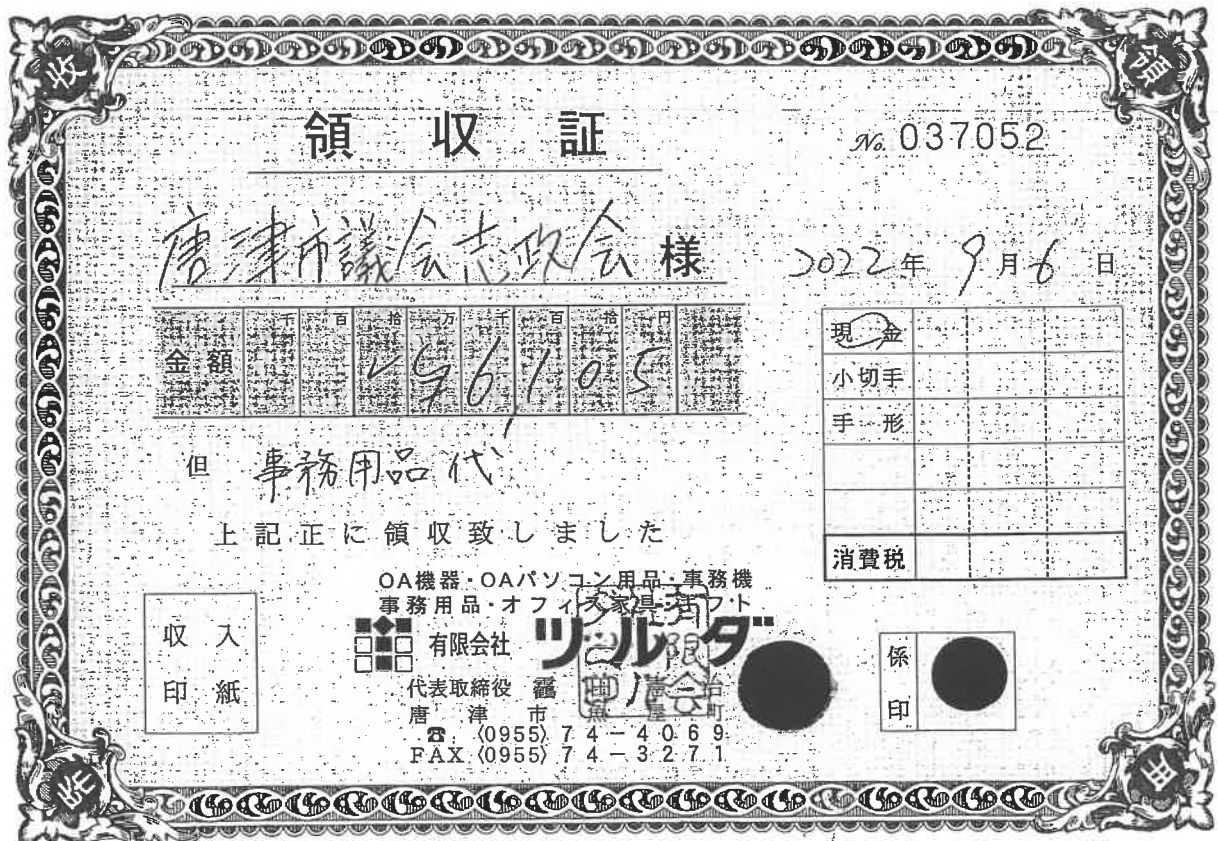 收 領
領収証
No. 037052
唐津市議会志政会 様
2022年 9月6日
千 百 拾 万 千 百 拾 円
金額 ¥96,105
現金
小切手
手形
消費税
但 事務用品代
上記正に領収致しました
OA機器・OAパソコン用品・事務機
事務用品・オフィス家具・ギフト
有限会社 ツルダ
代表取締役
唐津市魚屋町
☎ (0955) 74-4069
FAX (0955) 74-3271
収入
印紙
係
印